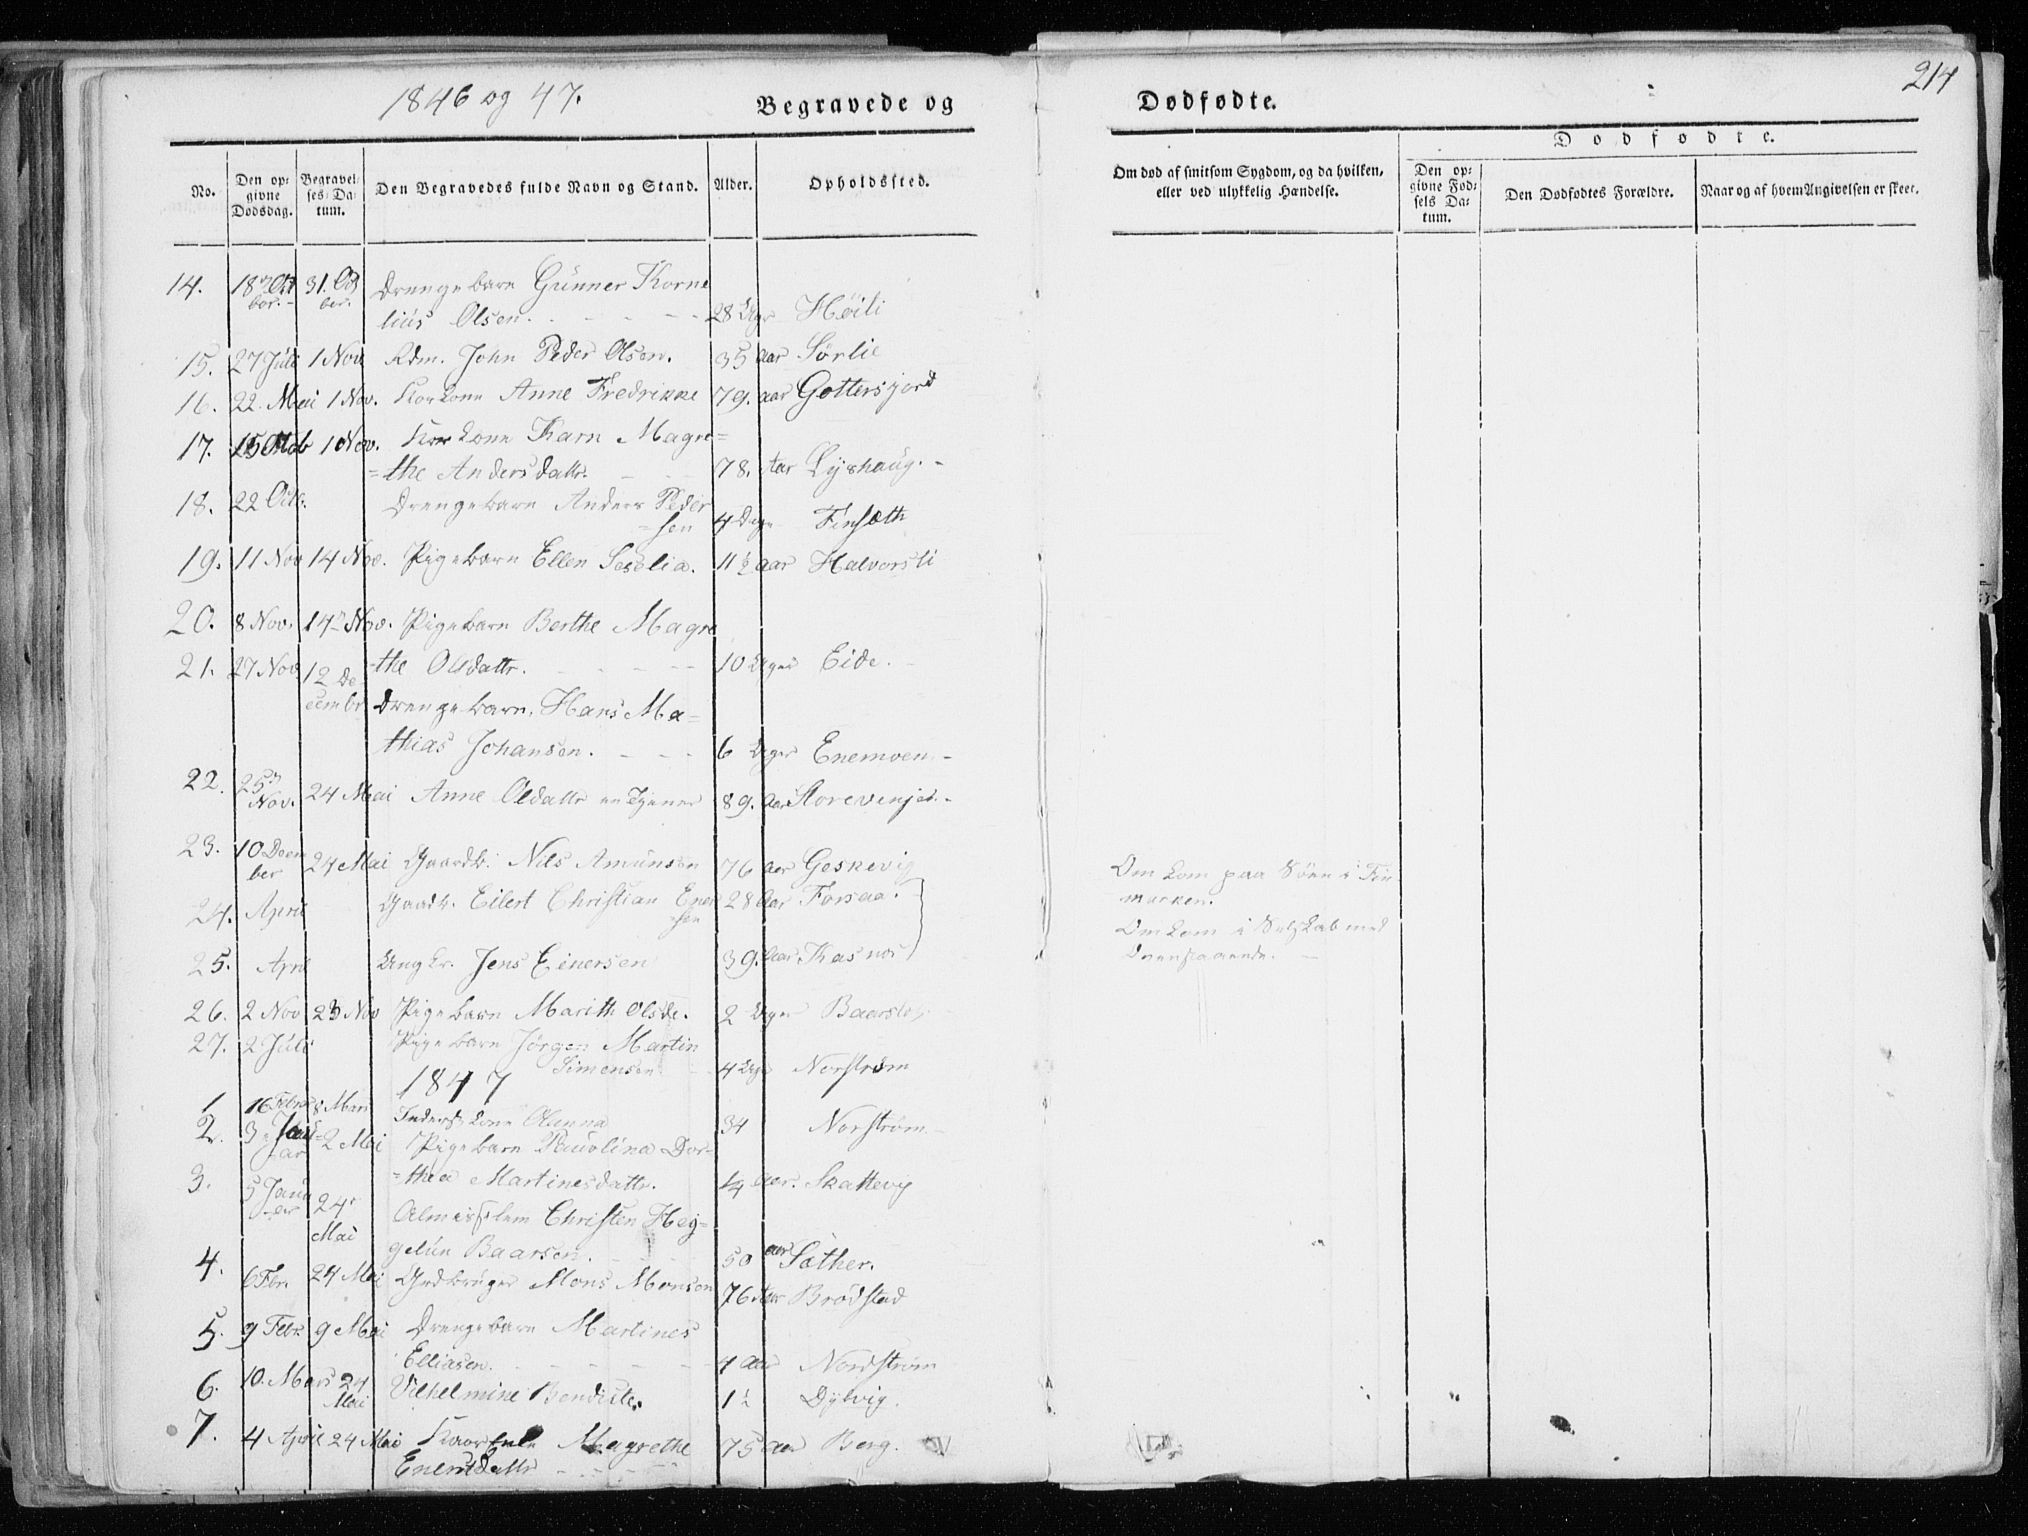 214
1846 og 47.
Begravede og Dødfødte.
Dødfødte.
No.
Den op-
givne
Dødsdag.
Begravel-
ses-Da-
tum.
Den Begravedes fulde Navn og Stand.
Alder.
Opholdssted.
Om død af smitsom Sygdom, og da hvilken,
eller ved ulykkelig Hændelse.
Den op-
givne Fød-
sels Da-
tum.
Den Dødfødtes Forældre.
Naar og af hvem Angivelsen er skeet.
14. 18de Oct 31. Oct Drengebarn Gunner Korne
ber. ber. lius Olsen. 28 Uger Høili
15. 27 Juli 1 Nov Rdm. John Peder Olsen. 35 Aar Sørlie
16. 22. Mai 1 Nov. Anne Fredrikke 79. Aar Gottersjord
17. 15 Octob 1 Nov. Karn Magre=
=the Andersdattr. 78. Aar Lyshaug.
18. 22 Octb. Drengebarn Anders Peder
=sen 4 Dage Finsæth
19. 11 Nov 14 Nov. Pigebarn Ellen Seselia. 11 ½ Aar Halvorsli
20. 8 Nov. 14de Nov. Pigebarn Berthe Magre
=the Olsdattr. 10 Uger Eide.
21. 27 Nov 12 De
cembr Drengebarn Hans Ma=
thias Johansen. 6 Uger Enemoen
22. 25de
Nov. 24 Mai Anne Oldattr en Tjener 89. Aar Storevenjes.
23. 10 Decem
ber 24 Mai Gaardb. Nils Amunsen 76 Aar Geskevig
24. April Gaadb. Eilert Christian Ener
=sen 28 Aar Forsaa. Omkom paa Søen i Fin
marken.
25. April Ungkr. Jens Einersen 39. Aar Kasnes Omkom i Selskab med
Ovenstaaende.
26. 2 Nov 23 Nov Pigebarn Marith Olsdr. 2 Uger
27. 2 Juli Pigebarn Jørgen Martin
Simensen 4 Uger Norstrøm
1847
1 16 Febr 8 Mars Inders Kone Olianna 34 Norstrøm
2. 3 Janu=
ar 2 Mai Pigebarn Paulina Dor=
=thea Martinesdattr. ¼ Aar. Skattevig
3. 5 Janu
ar 24de
Mai Almisselem Christen Hey=
gelun Baarsen. 50 aar Sæther.
4. 6 Fbr. 24 Mai Grdbruger Mons Monsen 76 Aar Brødstad
5. 9 Febr. 9 Mai Drengebarn Martines
Elliasen. 4 Aar Nordstrøm
6. 10. Mars 24
Mai Vilhelmine Bendikte. 1½ Dylvig.
7. 4 April 24 Mai Magrethe
Enertdattr 75 aar Berg.